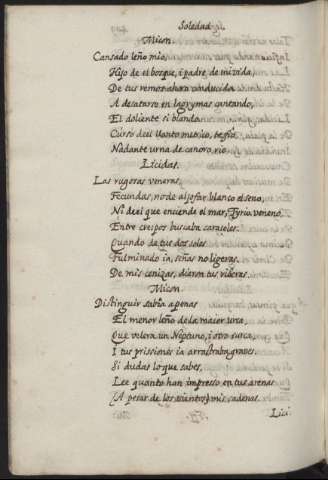 Soledad 2.
Micon
Cansado leño mio,
Hijo de el bosque, i padre de mi vida,
De tus remos ahora conducida
A desatarse en lagrymas cantando,
El doliente si blando
Curso de el llanto metrico, te fio
Nadante urna de canoro rio.
Lícidas.
Las rugosas veneras,
Fecundas, no de aljofar blanco el seno,
Ni de el que enciende el mar, Tyrio veneno,
Entre crespos buscaba caracoles:
Quando de tus dos soles
Fulminado ia, señas no ligeras,
De mis cenizas, dieron tus riberas.
Micon
Distinguir sabia apenas
El menor leño de la maior urca,
Que velera un Neptuno, i otro surca,
I tus prissiones ia arrastraba graves.
Si dudas lo que sabes,
Lee quanto han impresso en tus arenas
(A pesar de los vientos) mis cadenas.
Lici